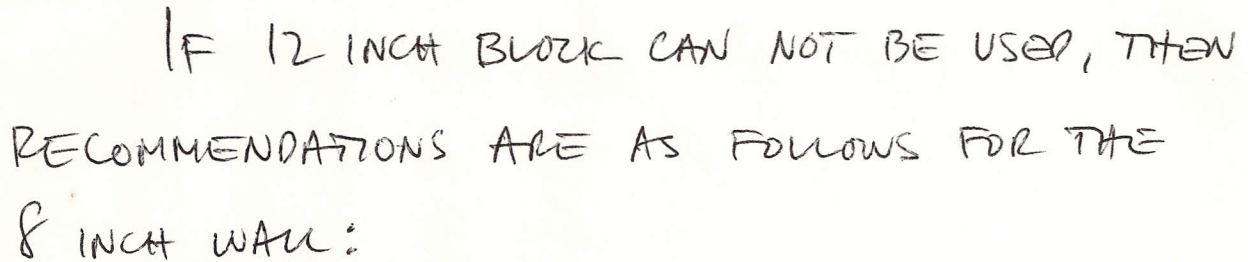 IF 12 INCH BLOCK CAN NOT BE USED, THEN
RECOMMENDATIONS ARE AS FOLLOWS FOR THE
8 INCH WALL: